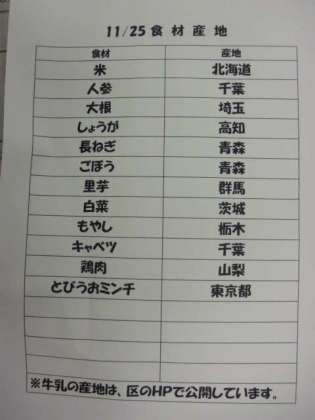 11/25食材産地
食材 産地
米 北海道
人参 千葉
大根 埼玉
しょうが 高知
長ねぎ 青森
ごぼう 青森
里芋 群馬
白菜 茨城
もやし 栃木
キャベツ 千葉
鶏肉 山梨
とびうおミンチ 東京都
※牛乳の産地は、区のHPで公開しています。